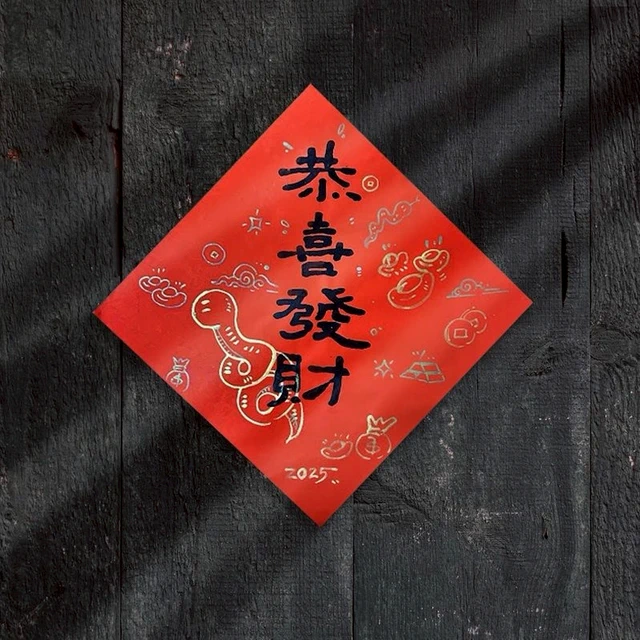 恭喜發財
2025